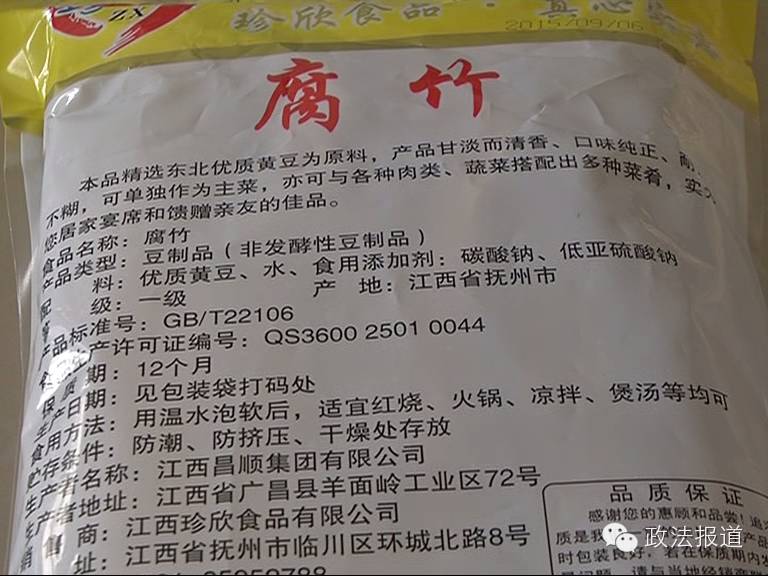 ZX
珍欣食品·真心
2015/09/06
腐竹
本品精选东北优质黄豆为原料，产品甘淡而清香、口味纯正、耐
不糊，可单独作为主菜，亦可与各种肉类、蔬菜搭配出多种菜肴，实
您居家宴席和馈赠亲友的佳品。
食品名称：腐竹
产品类型：豆制品（非发酵性豆制品）
配 料：优质黄豆、水、食用添加剂：碳酸钠、低亚硫酸钠
等 级：一级 产 地：江西省抚州市
产品标准号：GB/T22106
生产许可证编号：QS3600 2501 0044
保 质 期：12个月
生产日期：见包装袋打码处
食用方法：用温水泡软后，适宜红烧、火锅、凉拌、煲汤等均可
贮存条件：防潮、防挤压、干燥处存放
生产者名称：江西昌顺集团有限公司
生产者地址：江西省广昌县羊面岭工业区72号
销 售 商：江西珍欣食品有限公司
址：江西省抚州市临川区环城北路8号
品质保证
感谢您的惠顾和品尝！
质是我
产品
时包装良好，若在保质期内发
请与当地经销商
政法报道